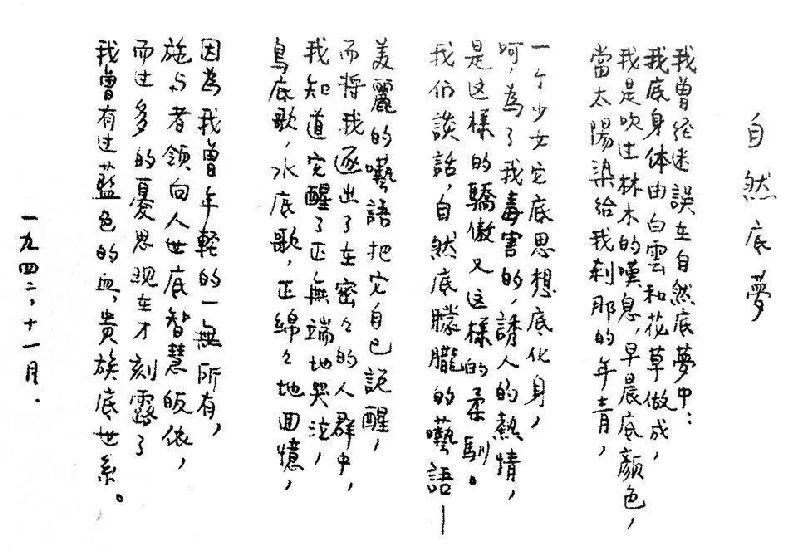 自然底夢
我曾经迷誤在自然底夢中:
我底身体由白雲和花草做成,
我是吹过林木的嘆息,早晨底顏色,
當太陽染給我刹那的年青,
一个少女它底思想底化身,
呵,為了我毒害的,誘人的熱情,
是这樣的驕傲又这樣的柔馴。
我们談話,自然底朦朧的囈語—
美麗的囈語把它自己説醒,
而將我逐出了在密々的人群中,
我知道它醒了正無端地哭泣,
鳥底歌,水底歌,正綿々地回憶,
因為我曾年輕的一無所有,
施与者領向人世底智慧皈依,
而过多的憂思现在才刻露了
我曾有过藍色的血,貴族底世系。
一九四二,十一月.